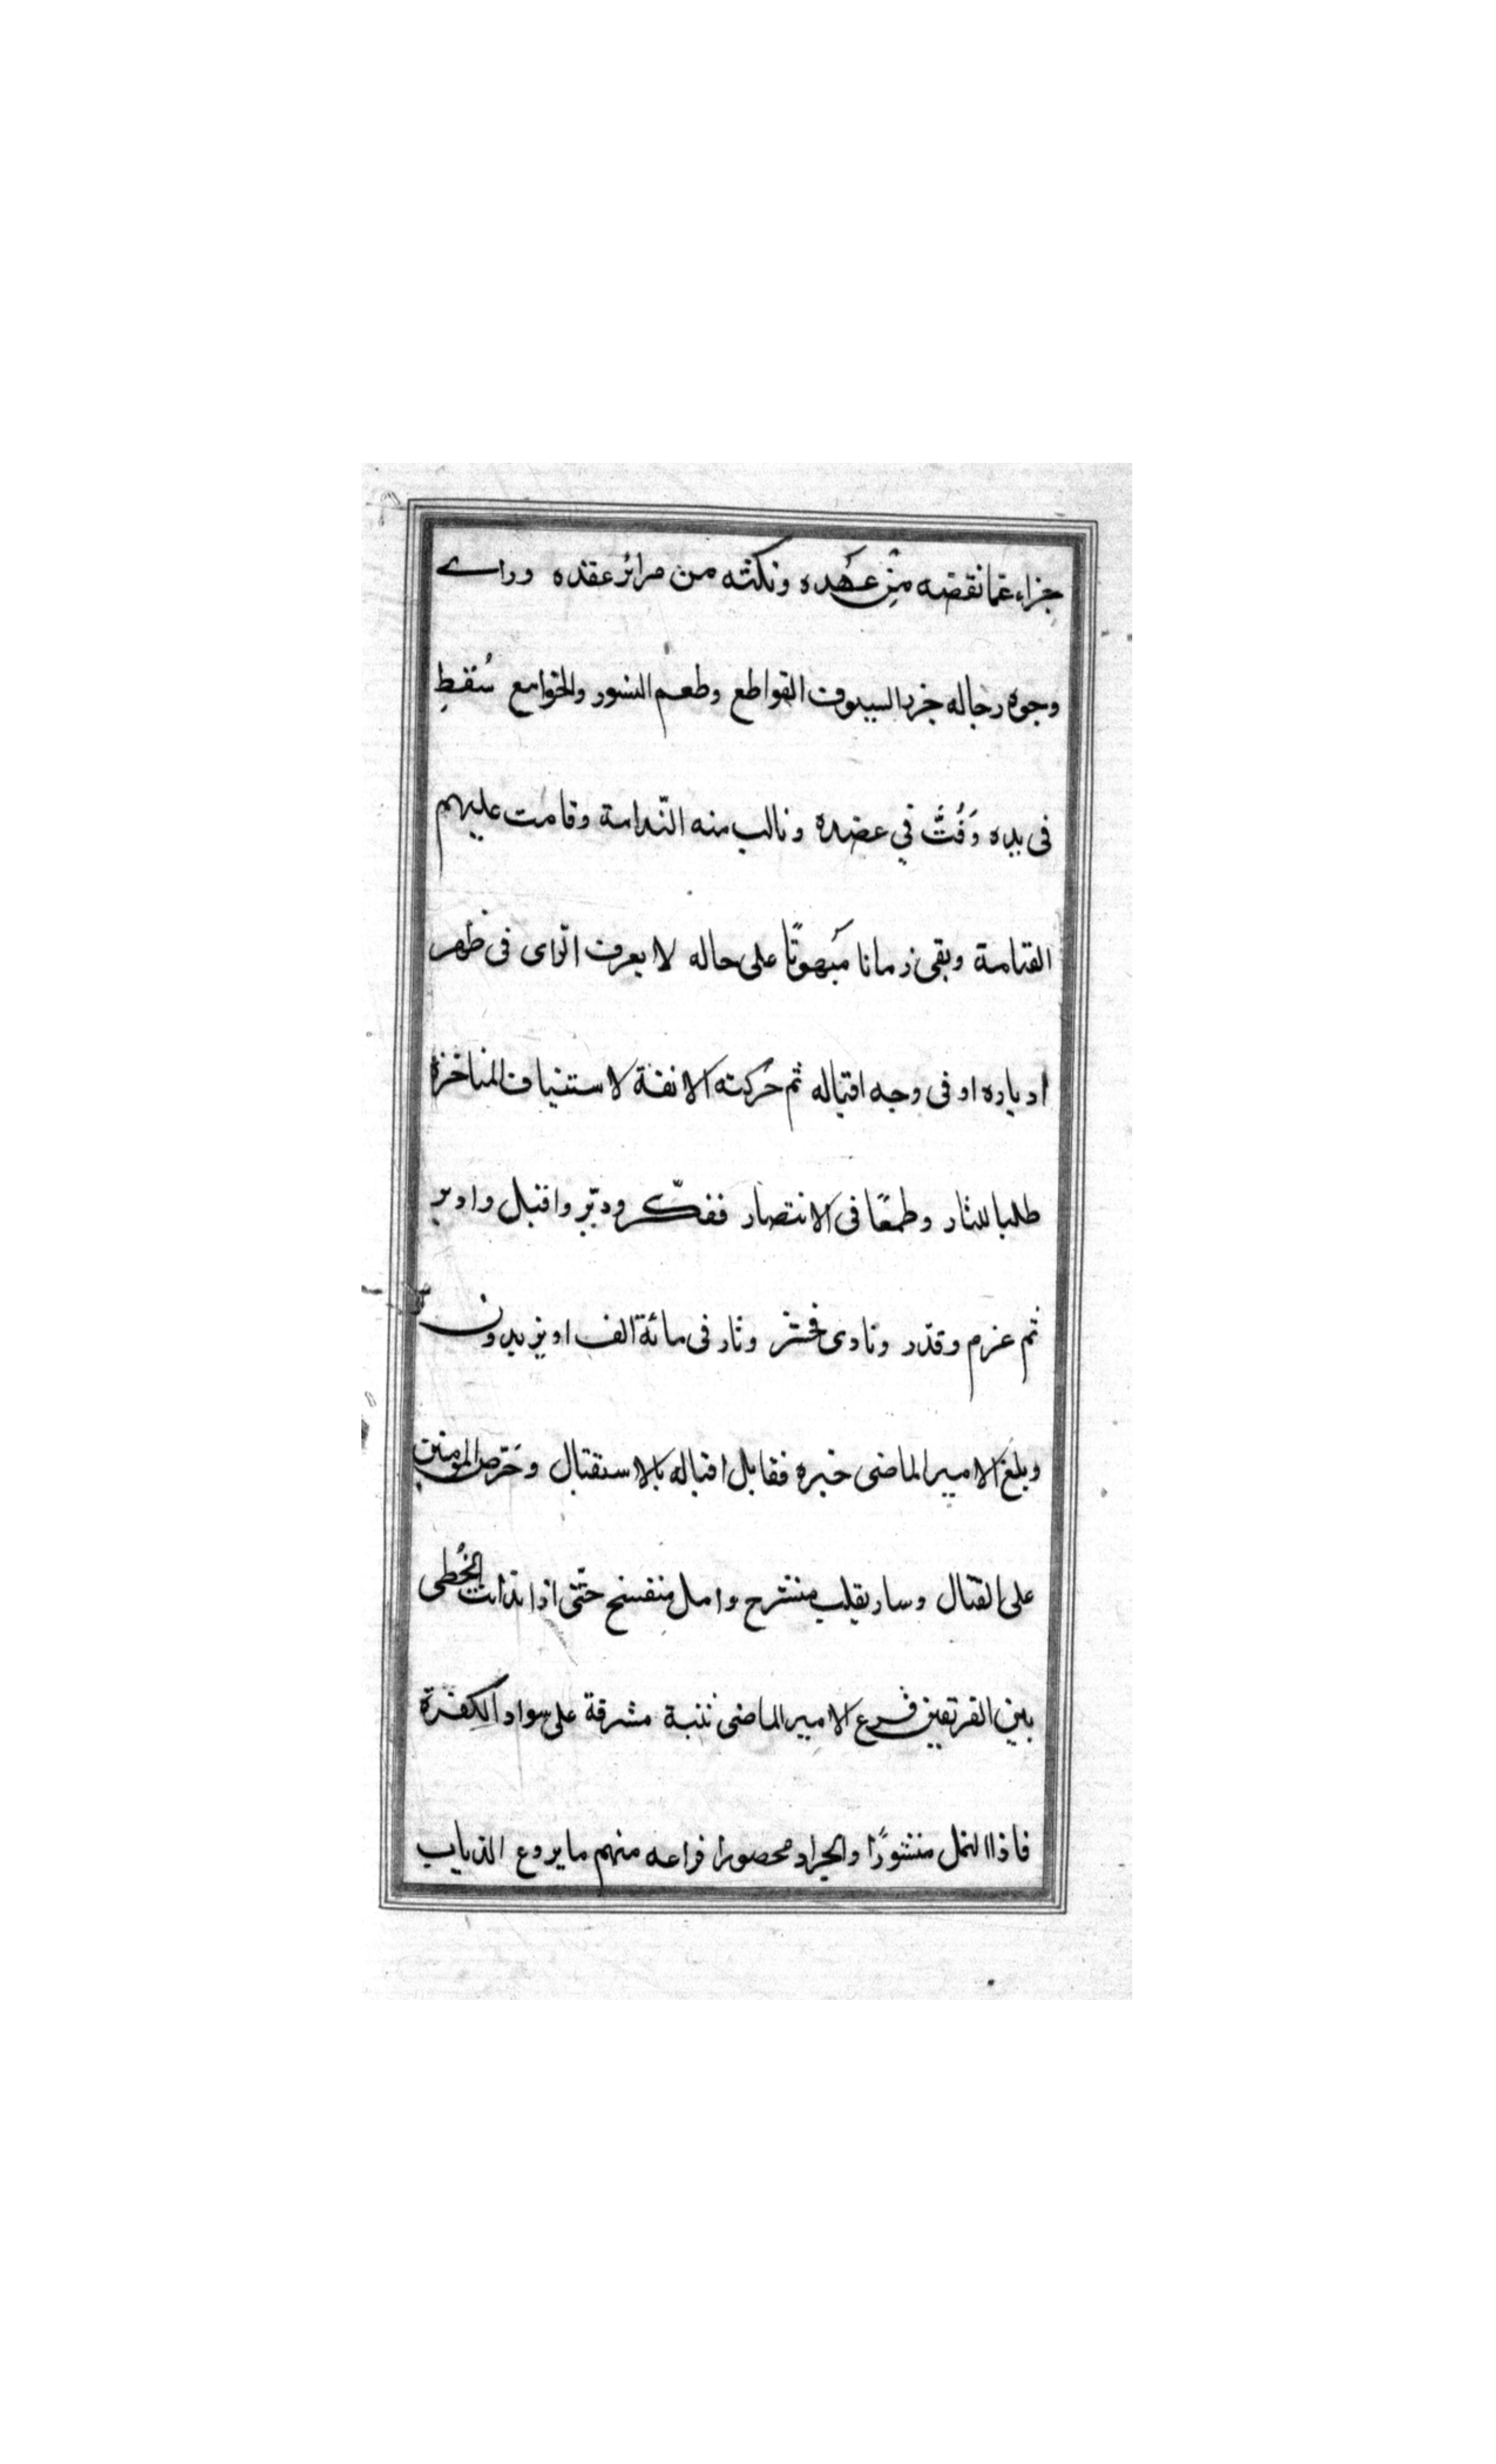 جزاء عمّا نقضه مِنْ عَهَده ونكثه من مرائر عقده وراے
وجوه رجاله جزر السيوف القواطع وطعم النسور والخوامع سُقطِ
فى يده وَفُتَّ فِي عضده ونالب منه النّدامة وقامت عليهم
القيامة وبقى زمانا مَبهوتًا على حاله لا يعرف الّراى فى ظهر
ادباره او فى وجه اقباله ثم حَركته الانفة لاستنياف المناخزة
طلبا للثار وطمعًا فى الانتصار ففكّر ودبّر واقبل وادبر
ثم عزم وقدّر ونادى فحشر وثار فى مائة الف او يزيدون
وبلغ الامير الماضى خبره فقابل اقباله بالاستقبال وحَرّص المؤمنين
على القتال وسار بقلب منشرح وامل منفسح حتّى اذا تدانت الخُطى
بين الفريقين فرع الامير الماضى ثنية مشرقة على سواد الكِفرة
فاذا النمل منشورًا والجراد محصورا فراعه منهم ما يروع الذياب